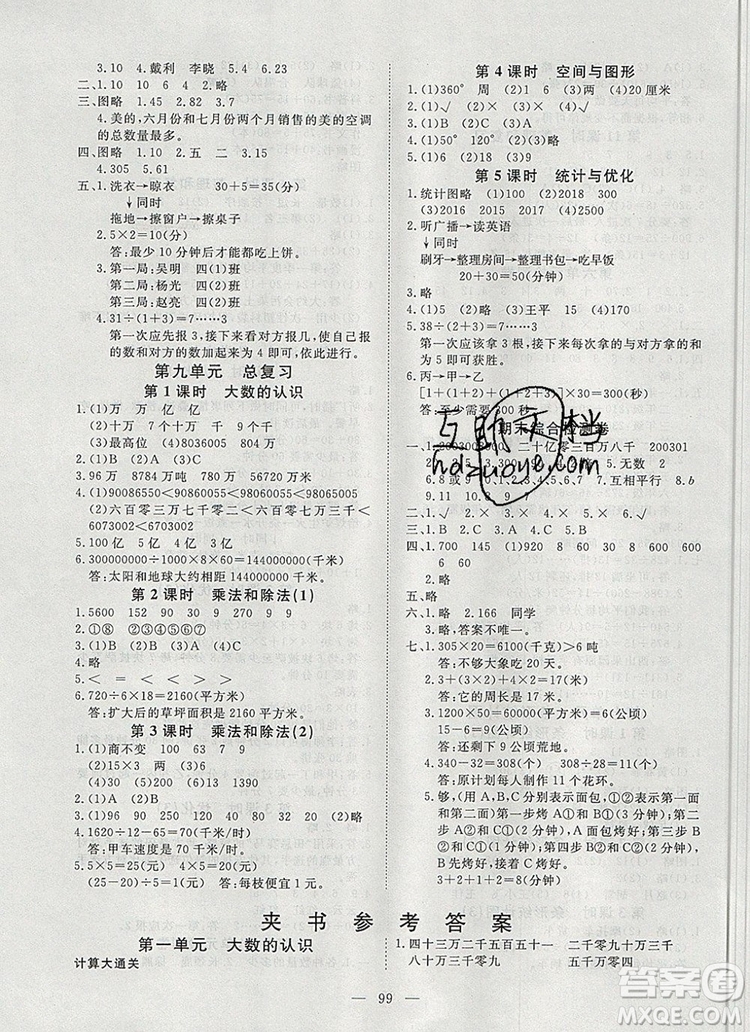 3.10　4.戴利　李晓　5.4　6.23
二、1.10　6　2　4.略
三、图略　1.45　2.82　3.略
4.美的,六月份和七月份两个月销售的美的空调
的总数量最多。
四、图略　1.10　2.五　二　3.15
4.305　5.略
五、1.洗衣→晾衣　30+5=35(分)
↓同时
拖地→擦窗户→擦桌子
2.5×2=10(分)
答:最少10分钟后才能都吃上饼。
3.第一局:吴明　四(1)班
第二局:杨光　四(1)班
第三局:赵亮　四(1)班
4.31÷(1+3)=7……3
第一次应先报3,接下来看对方报几,我们自己报
的数和对方的数加起来为4即可,依此报数即可。
第九单元　总复习
第1课时　大数的认识
1.(1)万　万　亿　亿
(2)十万　百万　千　9个千
(3)最高位　(4)8086400　9034000
2.(1)B　(2)A　(3)A
3.96万　87万　780万　56720万
4.(1)90086550<90860050<90860500<98060005
(2)六百零三万七千零二<六百零七万三千<
6073002<6703002
5.100亿　4亿　5亿　5亿
6.300000000÷1000×480=144000000(千米)
答:太阳和地球大约相距144000000千米。
第2课时　乘法和除法(1)
1.5600　152　90　30　9　810　900
2.①⑧　②③④⑤⑥⑦
3.(1)B　(2)B　(3)A　(4)A
4.略
5.<　=　<　>　>　<
6.720÷6×18=2160(平方米)
答:扩大后的草坪面积是2160平方米。
第3课时　乘法和除法(2)
1.(1)商不变　100　63　7　9
(2)15　(3)50　(4)30　200　1390
2.(1)B　(2)A　(3)B　(4)A
3.(1)96　90　250　120　80　20　(2)略
4.1620÷12-65=70(千米/时)
答:甲车速度是70千米/时。
5.5×5=25(元)　4×5=20(元)
(25-20)÷5=1(元)　答:每枝便宜1元。
第4课时　空间与图形
1.(1)360°　周　(2)1　6　(3)两　(4)20厘米
2.(1)√　(2)×　(3)×　(4)√
3.(1)B　(2)C　(3)A
4.(1)50°　130°　50°　(2)60°　(3)略
第5课时　统计与优化
1.统计图略　(1)100　(2)2018　300
(3)2016　2015　2017　(4)2500
2.听广播→读英语
↓同时
刷牙→整理房间→整理书包→吃早饭
20+30=50(分钟)
3.略
4.(1)略　(2)略　(3)王平　15　(4)170
5.38÷(2+3)=7……3
第一次应该拿3颗,接下来每次与对方拿的和
为5即可获胜。
6.丙→甲→乙
答:至少需要
期末综合检测卷
互助文档
hdzuoye.com
二十亿零三百万八千　200301
5.无数　2
6.8或9　7.互相平行　8.b
9.11　10.9　9　1
三、1.B　2.C　3.A　4.B　5.C
四、1.700　145　(2)90　60　30　8　600　600
6　60
五、略
六、1.略　2.166　同学
3.略。答案不唯一。
4.略
七、1.305×20=6100(千克)>6吨
答:不够大象吃20天。
2.4×2+3×3=17(厘米)
答:它的周长是17厘米。
3.1200×50=60000(平方米)=6(公顷)
15-6=9(公顷)
答:还剩下9公顷荒地。
4.340-32=308(个)　308÷28=11(个)
答:原计划每人制作11个花环。
5.够,(用A、B、C分别表示面包,①②表示面包的正
面和第二面)第一步烤A①和B①(2分钟),第二
步B②和C①(2分钟),A面包烤好;第三步
A②和C②(2分钟),B、C烤好。
3+2+1+2=8(分钟)
夹书参考答案
第一单元　大数的认识
计算大通关
一、四十三万二千五百五十一　二千零九十万三千
八十万三千零九　五千万零四百
— 99 —
答案圈
MXQE.COM